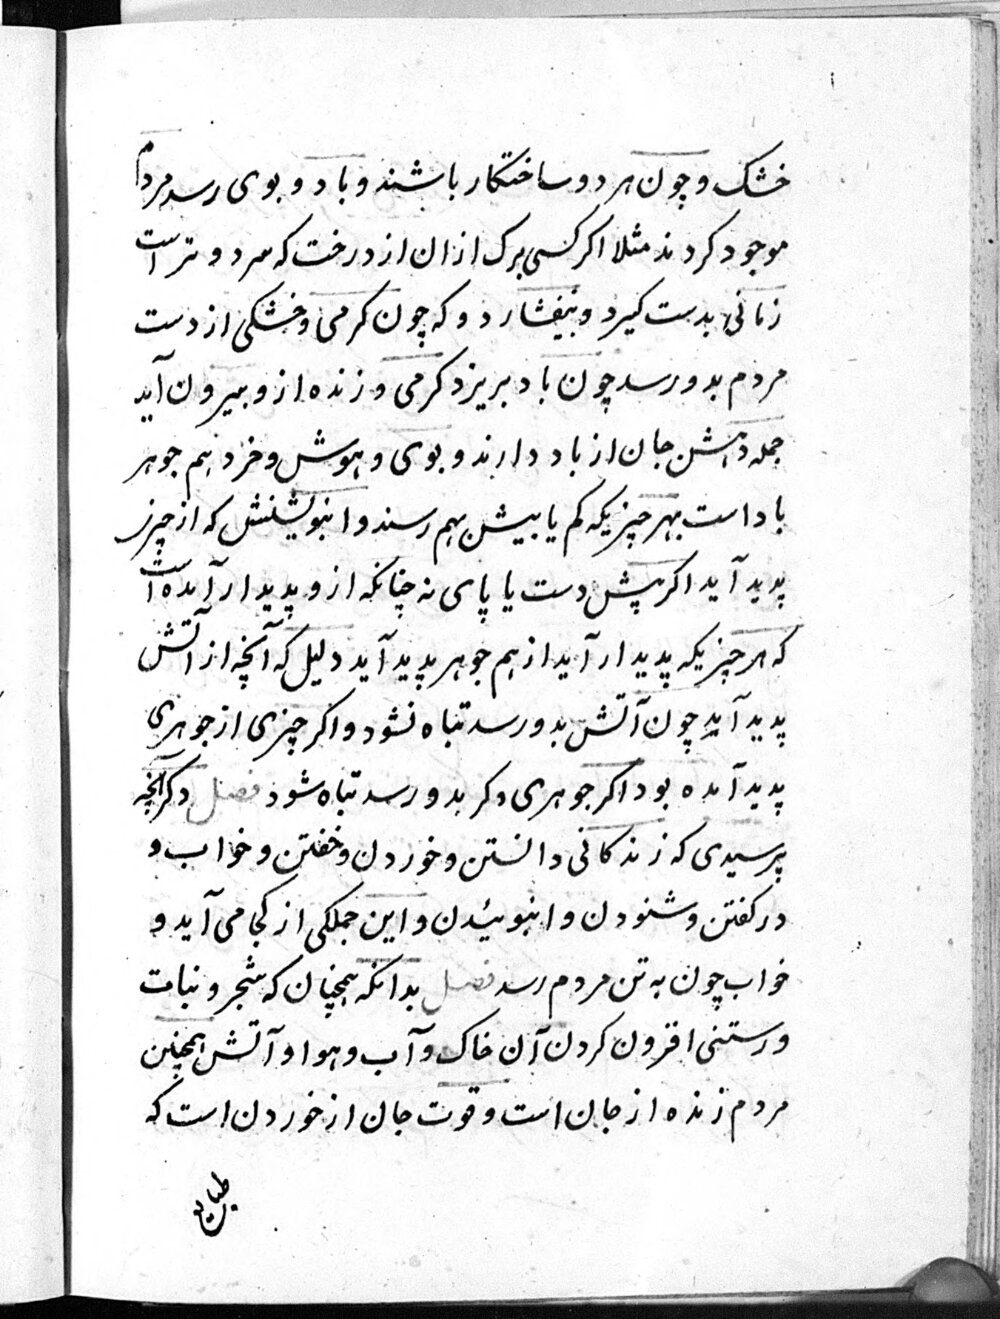 خشک و چون هر دو ساختکار باشند و باد و بوی رسد مردم
موجود کردند مثلا اکر کسی برک ازان از درخت که سرد و تر است
زمانی بدست کیرد و بیفشارد و که چون کرمی و خشکی از دست
مردم بدو رسد چون باد بریزد کرمی و زنده ازو بیرون آید
جمله دانش جان از باد دارند و بوی و هوش و خرد هم جوهر
باد است بهر چیزیکه کم یا بیش بهم رسند و انبوئیدنش که از چیز
پدید آید اکر پیش دست یا پای نه چنانکه ازو پدیدار آیده است
که هر چیزیکه پدیدار آید از هم جوهر پدید آید دلیل که آنچه از آتش
پدید آید چون آتش بدو رسد تباه نشود و اکر چیزی از جوهری
پدید آمده بود اکر جوهری دکر بدو رسد تباه شود فصل دکر آنچه
پرسیدی که زندکانی دانستن و خوردن و خفتن و خواب و
در کفتن و شنودن و انبوئیدن و این جملکی از کجا می آید و
خواب چون به تن مردم رسد فصل بدانکه همچنان که شجر و نبات
و رستنی افزون کردن آن خاک و آب و هوا و آتش همچنین
مردم زنده از جان است و قوت جان از خوردن است که
طبایع